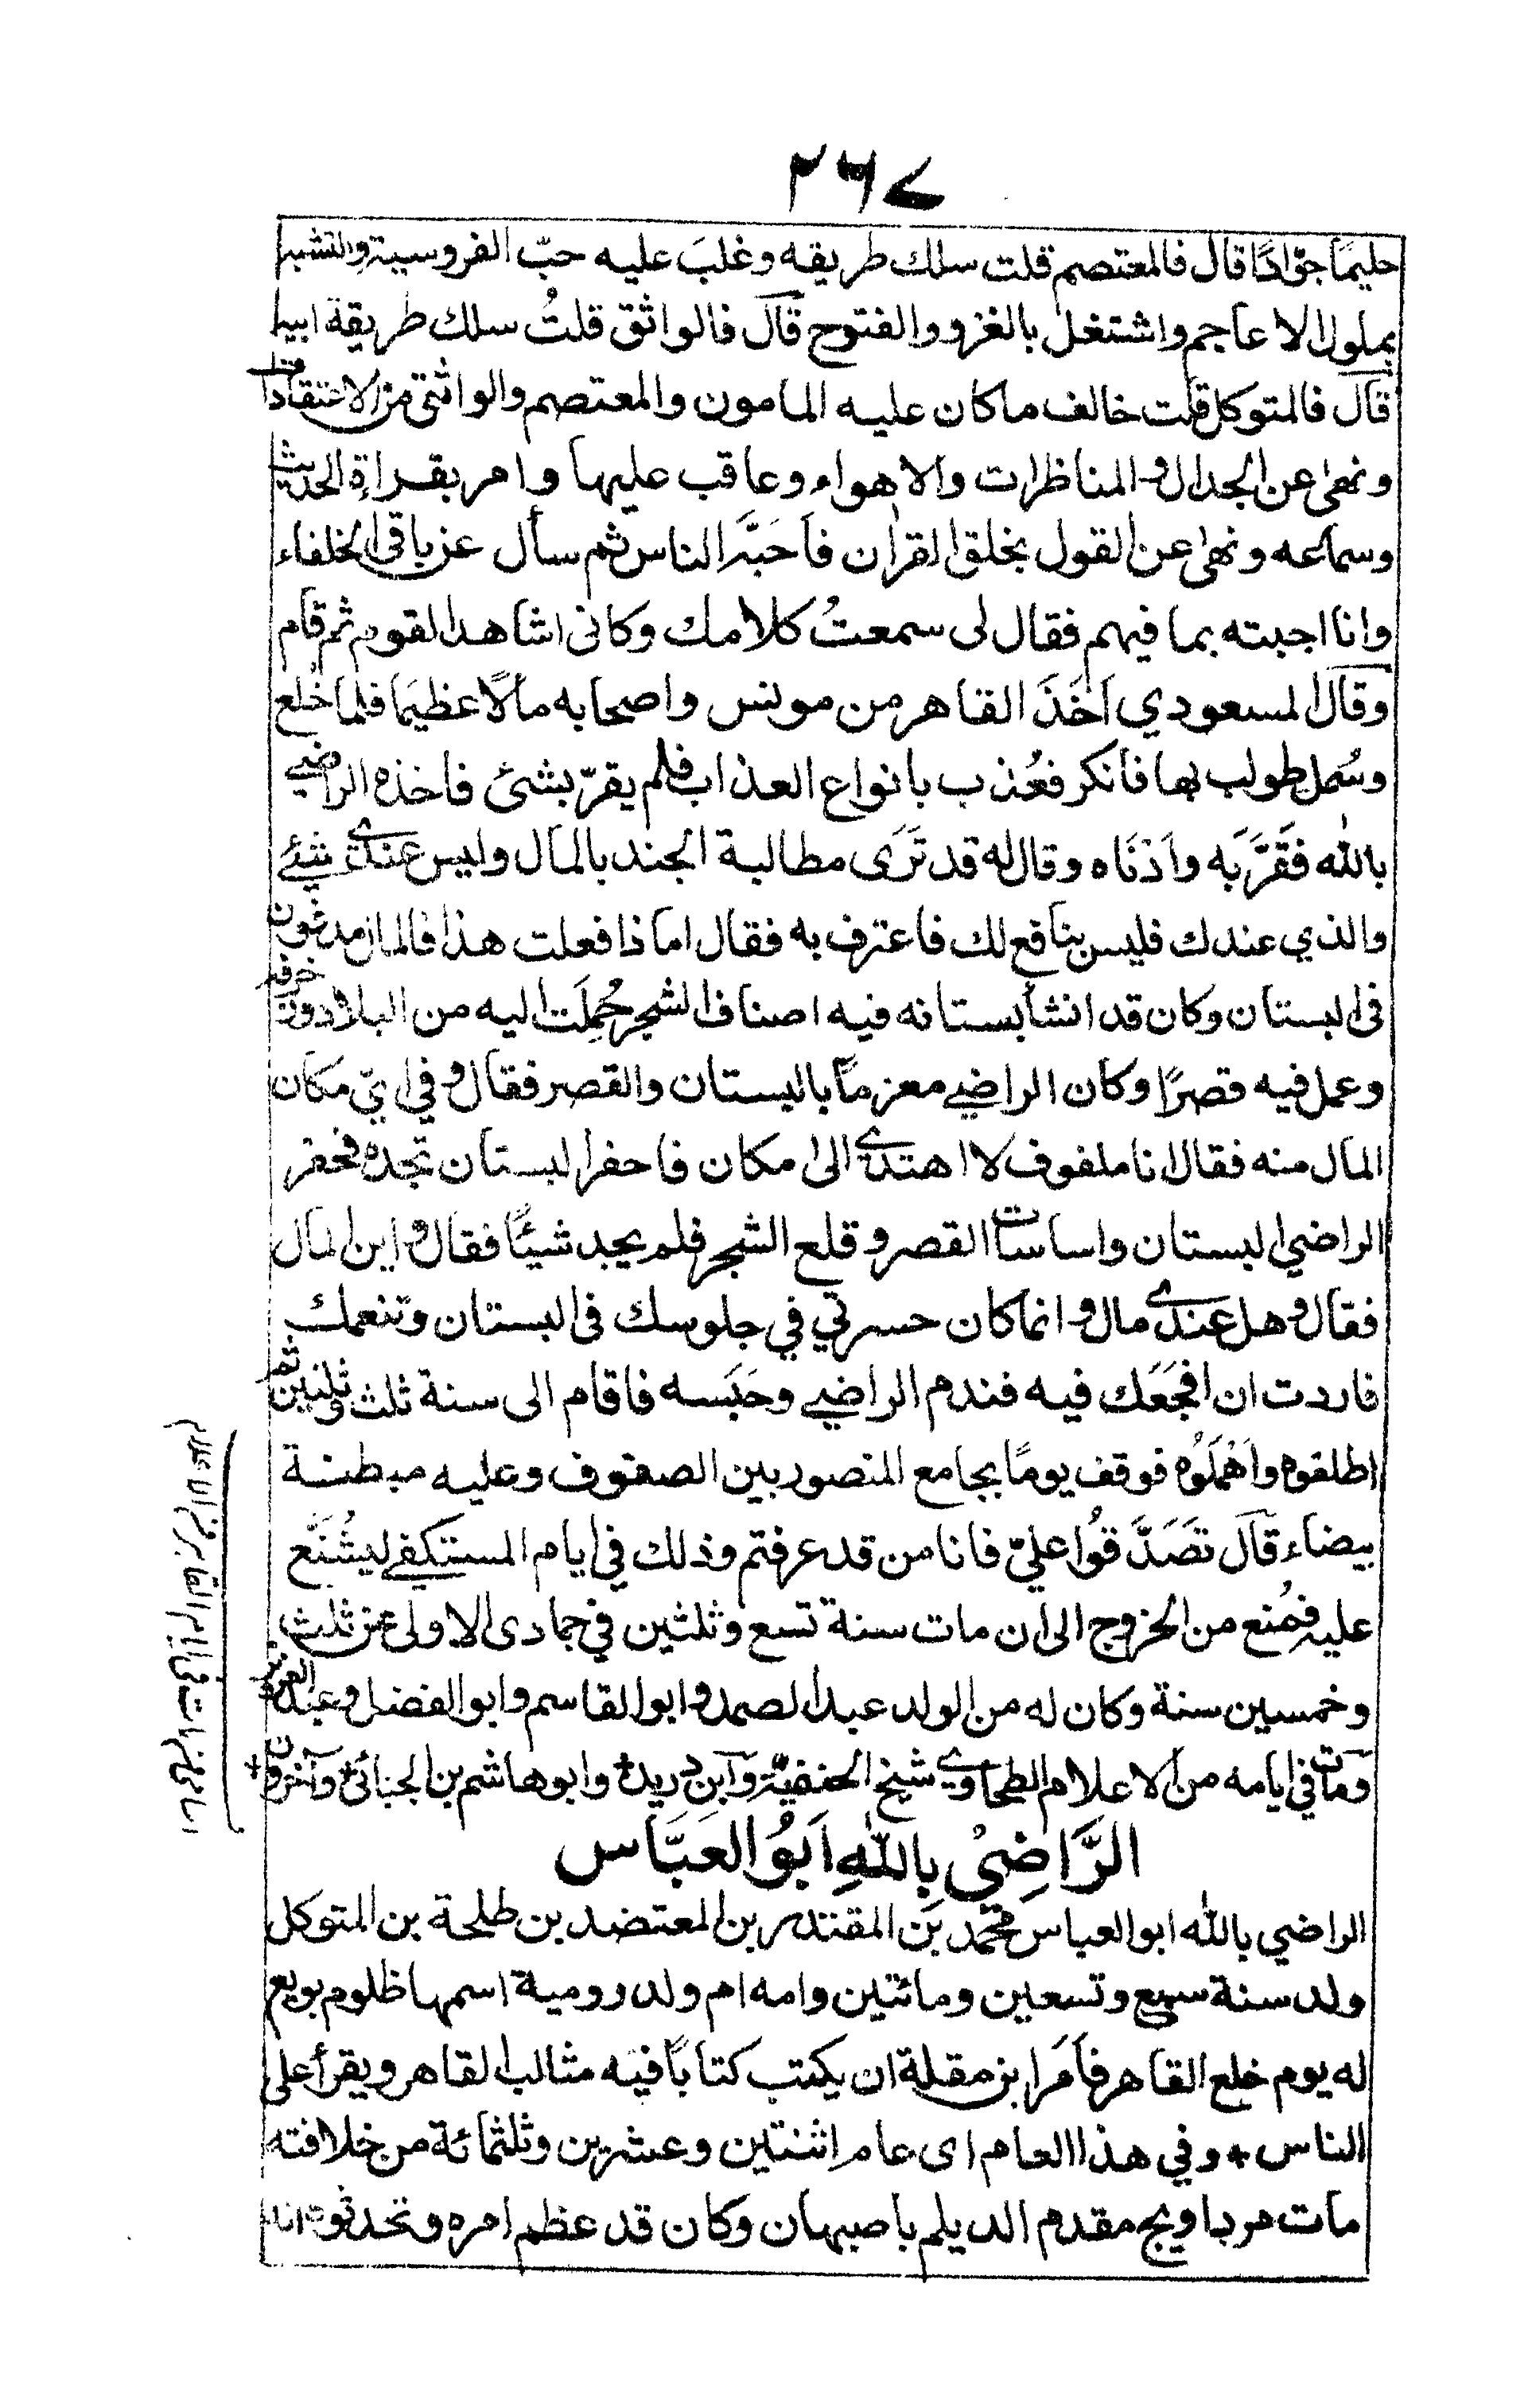 ٢٦٧
حليمًا جوّادًا قال فالمعتصم قلت سلك طريقه وغلبَ عليه حبّ الفروسية والتشبه
بملوك الاعاجم واشتغل بالغزو والفتوح قال فالواثق قلتُ سلك طريقة ابيه
قال فالمتوكل قلت خالف ماكان عليه المامون والمعتصم والواثق من الاعتقادات
ونهى عن الجدال والمناظرات والاهواء وعاقب عليها وامر بقراءة الحديث
وسماعه ونهى عن القول بخلق القران فاَحَبَّه الناس ثم سأل عن باقي الخلفاء
وانا اجبته بما فيهم فقال لى سمعتُ كلامك وكانى اشاهد القوم ثم قام
وقال المسعودي اَخَذَ القاهر من مونس واصحابه مالًا عظيمًا فلما خُلع
وسُمل طولب بها فانكر فعُذب بانواع العذاب فلم يقرّ بشئ فاخذه الراضي
بالله فقَرَّبَه واَدْنَاه وقال له قد تَرَى مطالبة الجند بالمال وليس عندى شئ
والذي عندك فليس بنافع لك فاعترف به فقال اما ذا فعلت هذا فالمال مدفون
فى البستان وكان قد انشأ بستانه فيه اصناف الشجر حُمِلَت اليه من البلاد وزخرفه
وعمل فيه قصرًا وكان الراضي مغرمًا بالبستان والقصر فقال وفي ايّ مكان
المال منه فقال انا مكفوف لا اهتدى الى مكان فاحفر البستان تجده فحفر
الراضي البستان واساسات القصر وقلع الشجر فلم يجد شيئًا فقال و اين المال
فقال وهل عندى مال وانما كان حسرتي في جلوسك فى البستان وتنعمك
فاردت ان افجَعَك فيه فندم الراضي وحَبَسه فاقام الى سنة ثلث وثلثين ثم
اطلقوه واَهْمَلُوْه فوقف يومًا بجامع المنصور بين الصفوف وعليه مبطنة
بيضاء قال تَصَدَّقُوا عليّ فانا من قد عرفتم وذلك في ايام المستكفى ليُشَنِّع
عليه فمُنع من الخروج الى ان مات سنة تسع وثلثين في جمادى الاولى عن ثلث
وخمسين سنة وكان له من الولد عبد الصمد وابو القاسم وابو الفضل وعبد العزيز
ومات في ايامه من الاعلام الطحاوى شيخ الحنفية وابن دريد وابو هاشم بن الجبائى وآخرون
اسامى من مات فى ايام القاهر من الاعلام
الرَّاضِيْ بِاللّٰهِ اَبُو العَبَّاس
الراضي بالله ابو العباس محمد بن المقتدر بن المعتضد بن طلحة بن المتوكل
ولد سنة سبع وتسعين ومائتين وامه ام ولد رومية اسمها ظلوم بويع
له يوم خلع القاهر فاَمَر ابن مقلة ان يكتب كتابًا فيه مثالب القاهر ويقرأ على
الناس * وفي هذا العام اى عام اثنتين وعشرين وثلثمائة من خلافته
مات مرداويج مقدم الديلم باصبهان وكان قد عظم امره وتحدثوا انه